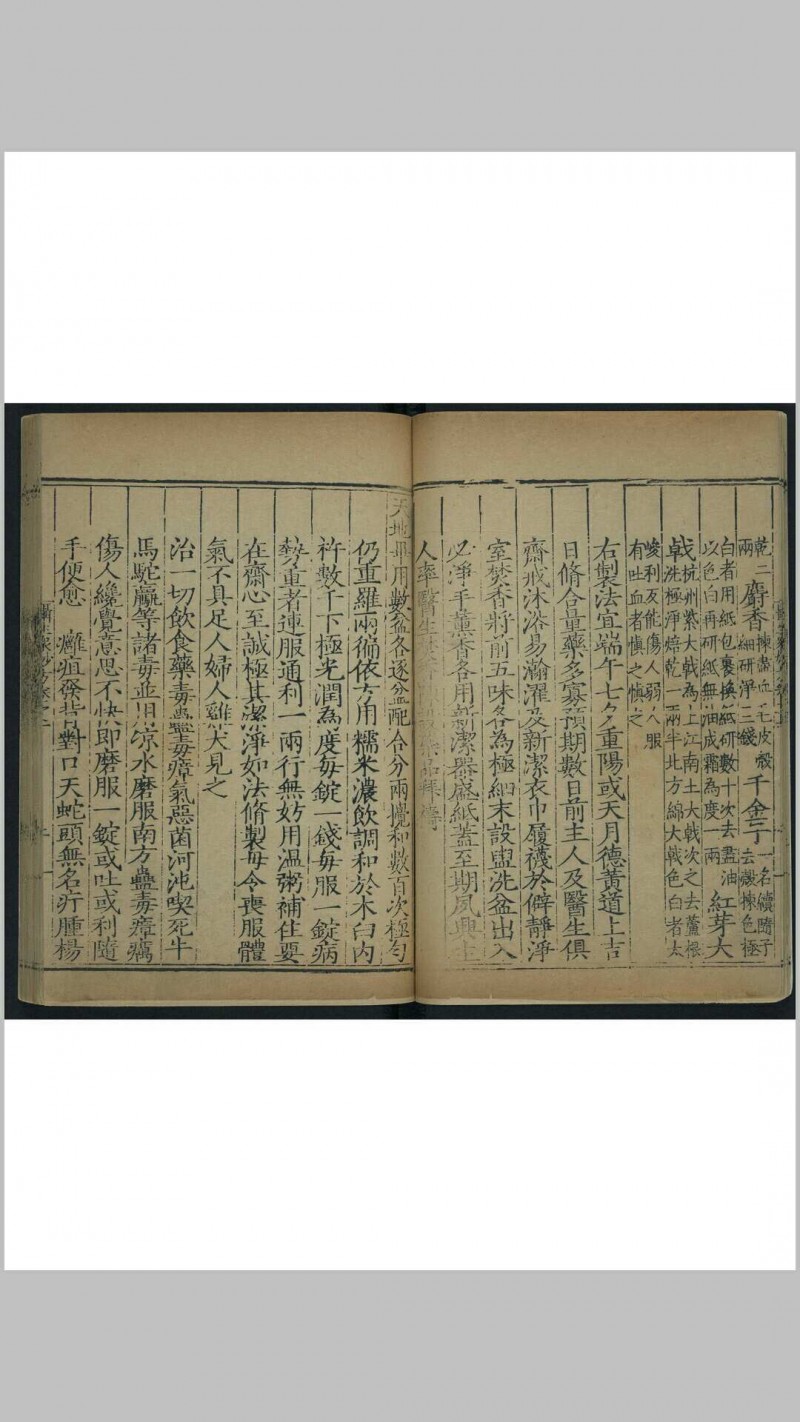 乾二
兩
麝香
揀當血毛皮殼
細研淨三錢
千金子
一名續隨子
去殼揀色極
白者用紙包裹換紙研數十次去盡油
以色白再研紙無油成霜為度一兩
紅芽大
戟
杭州紫大戟為上江南土大戟次之去蘆根
洗極淨焙乾一兩半北方綿大戟色白者太
峻利反能傷人弱人服
有吐血者慎之慎之
右製法宜端午七夕重陽或天月德黃道上吉
日脩合量藥多寡預期數日前主人及醫生俱
齋戒沐浴易瀚濯及新潔衣巾履襪於僻靜淨
室焚香將前五味各為極細末設盥洗盆出入
必淨手薰香各用新潔器盛紙蓋至期夙興主
人率醫生
天地畢用數盆各逐盆配合分兩攪和數百次極勻
仍重羅兩徧依方用糯米濃飲調和於木臼内
杵數千下極光潤為度每錠一錢每服一錠病
勢重者連服通利一兩行無妨用溫粥補住要
在齋心至誠極其潔淨如法脩製毎令喪服體
氣不具足人婦人雞犬見之
治一切飲食藥毒蠱毒瘴氣惡菌河沌喫死牛
馬駝驘等諸毒並用凉水磨服南方蠱毒瘴癘
傷人纔覺意思不快即磨服一錠或吐或利隨
手便愈　癰疽發背對口天蛇頭無名疔腫楊